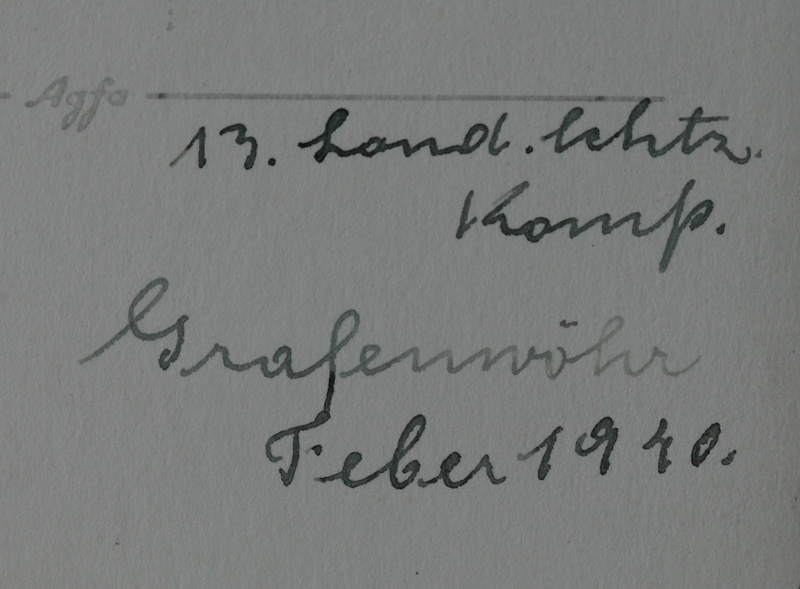 Agfa
13. Land. Schtz.
Komp.
Grafenwöhr
Feber 1940.